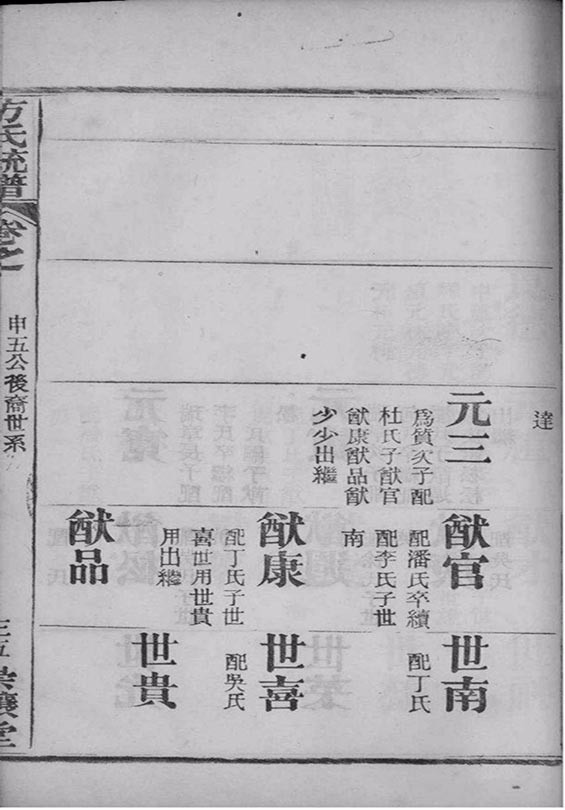 達
元三
爲質次子配
杜氏子猷官
猷康猷品猷
少少出繼
猷官
配潘氏卒續
配李氏子世
南
猷康
配丁氏子世
喜世用世貴
用出繼
猷品
世南
配丁氏
世喜
配吳氏
世貴
方氏統譜
卷之
申五公後裔世系